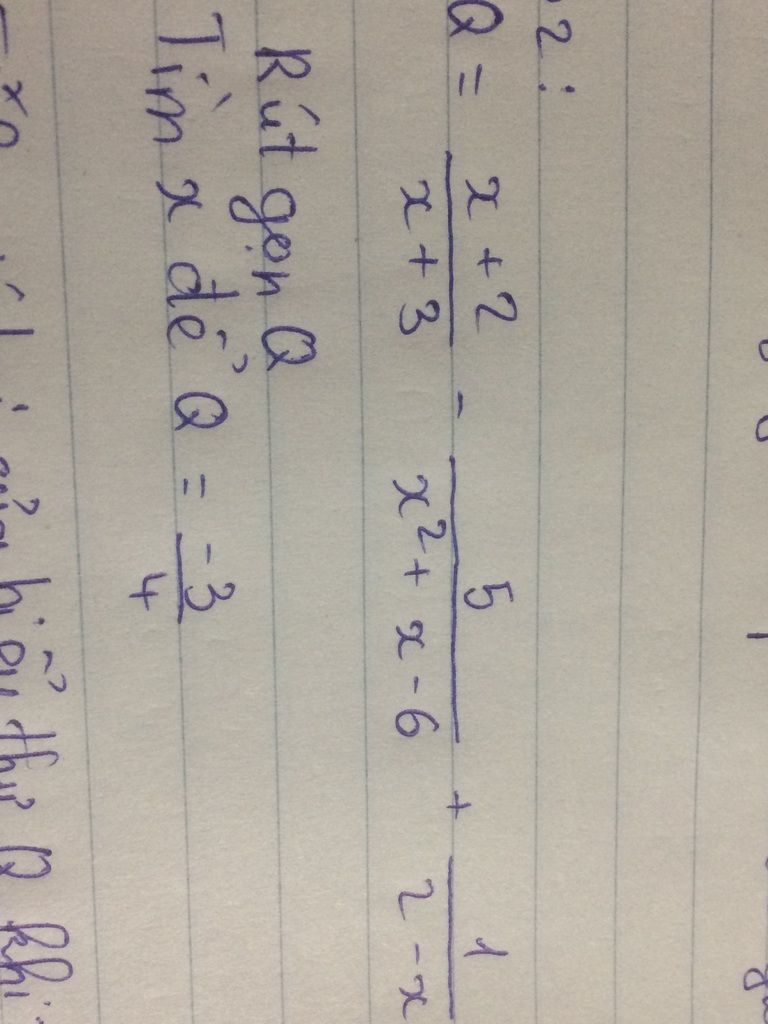 2:
Q = \frac{x+2}{x+3} - \frac{5}{x^2+x-6} + \frac{1}{2-x}
Rút gọn Q
Tìm x để Q = \frac{-3}{4}
của biểu thứ Q khi